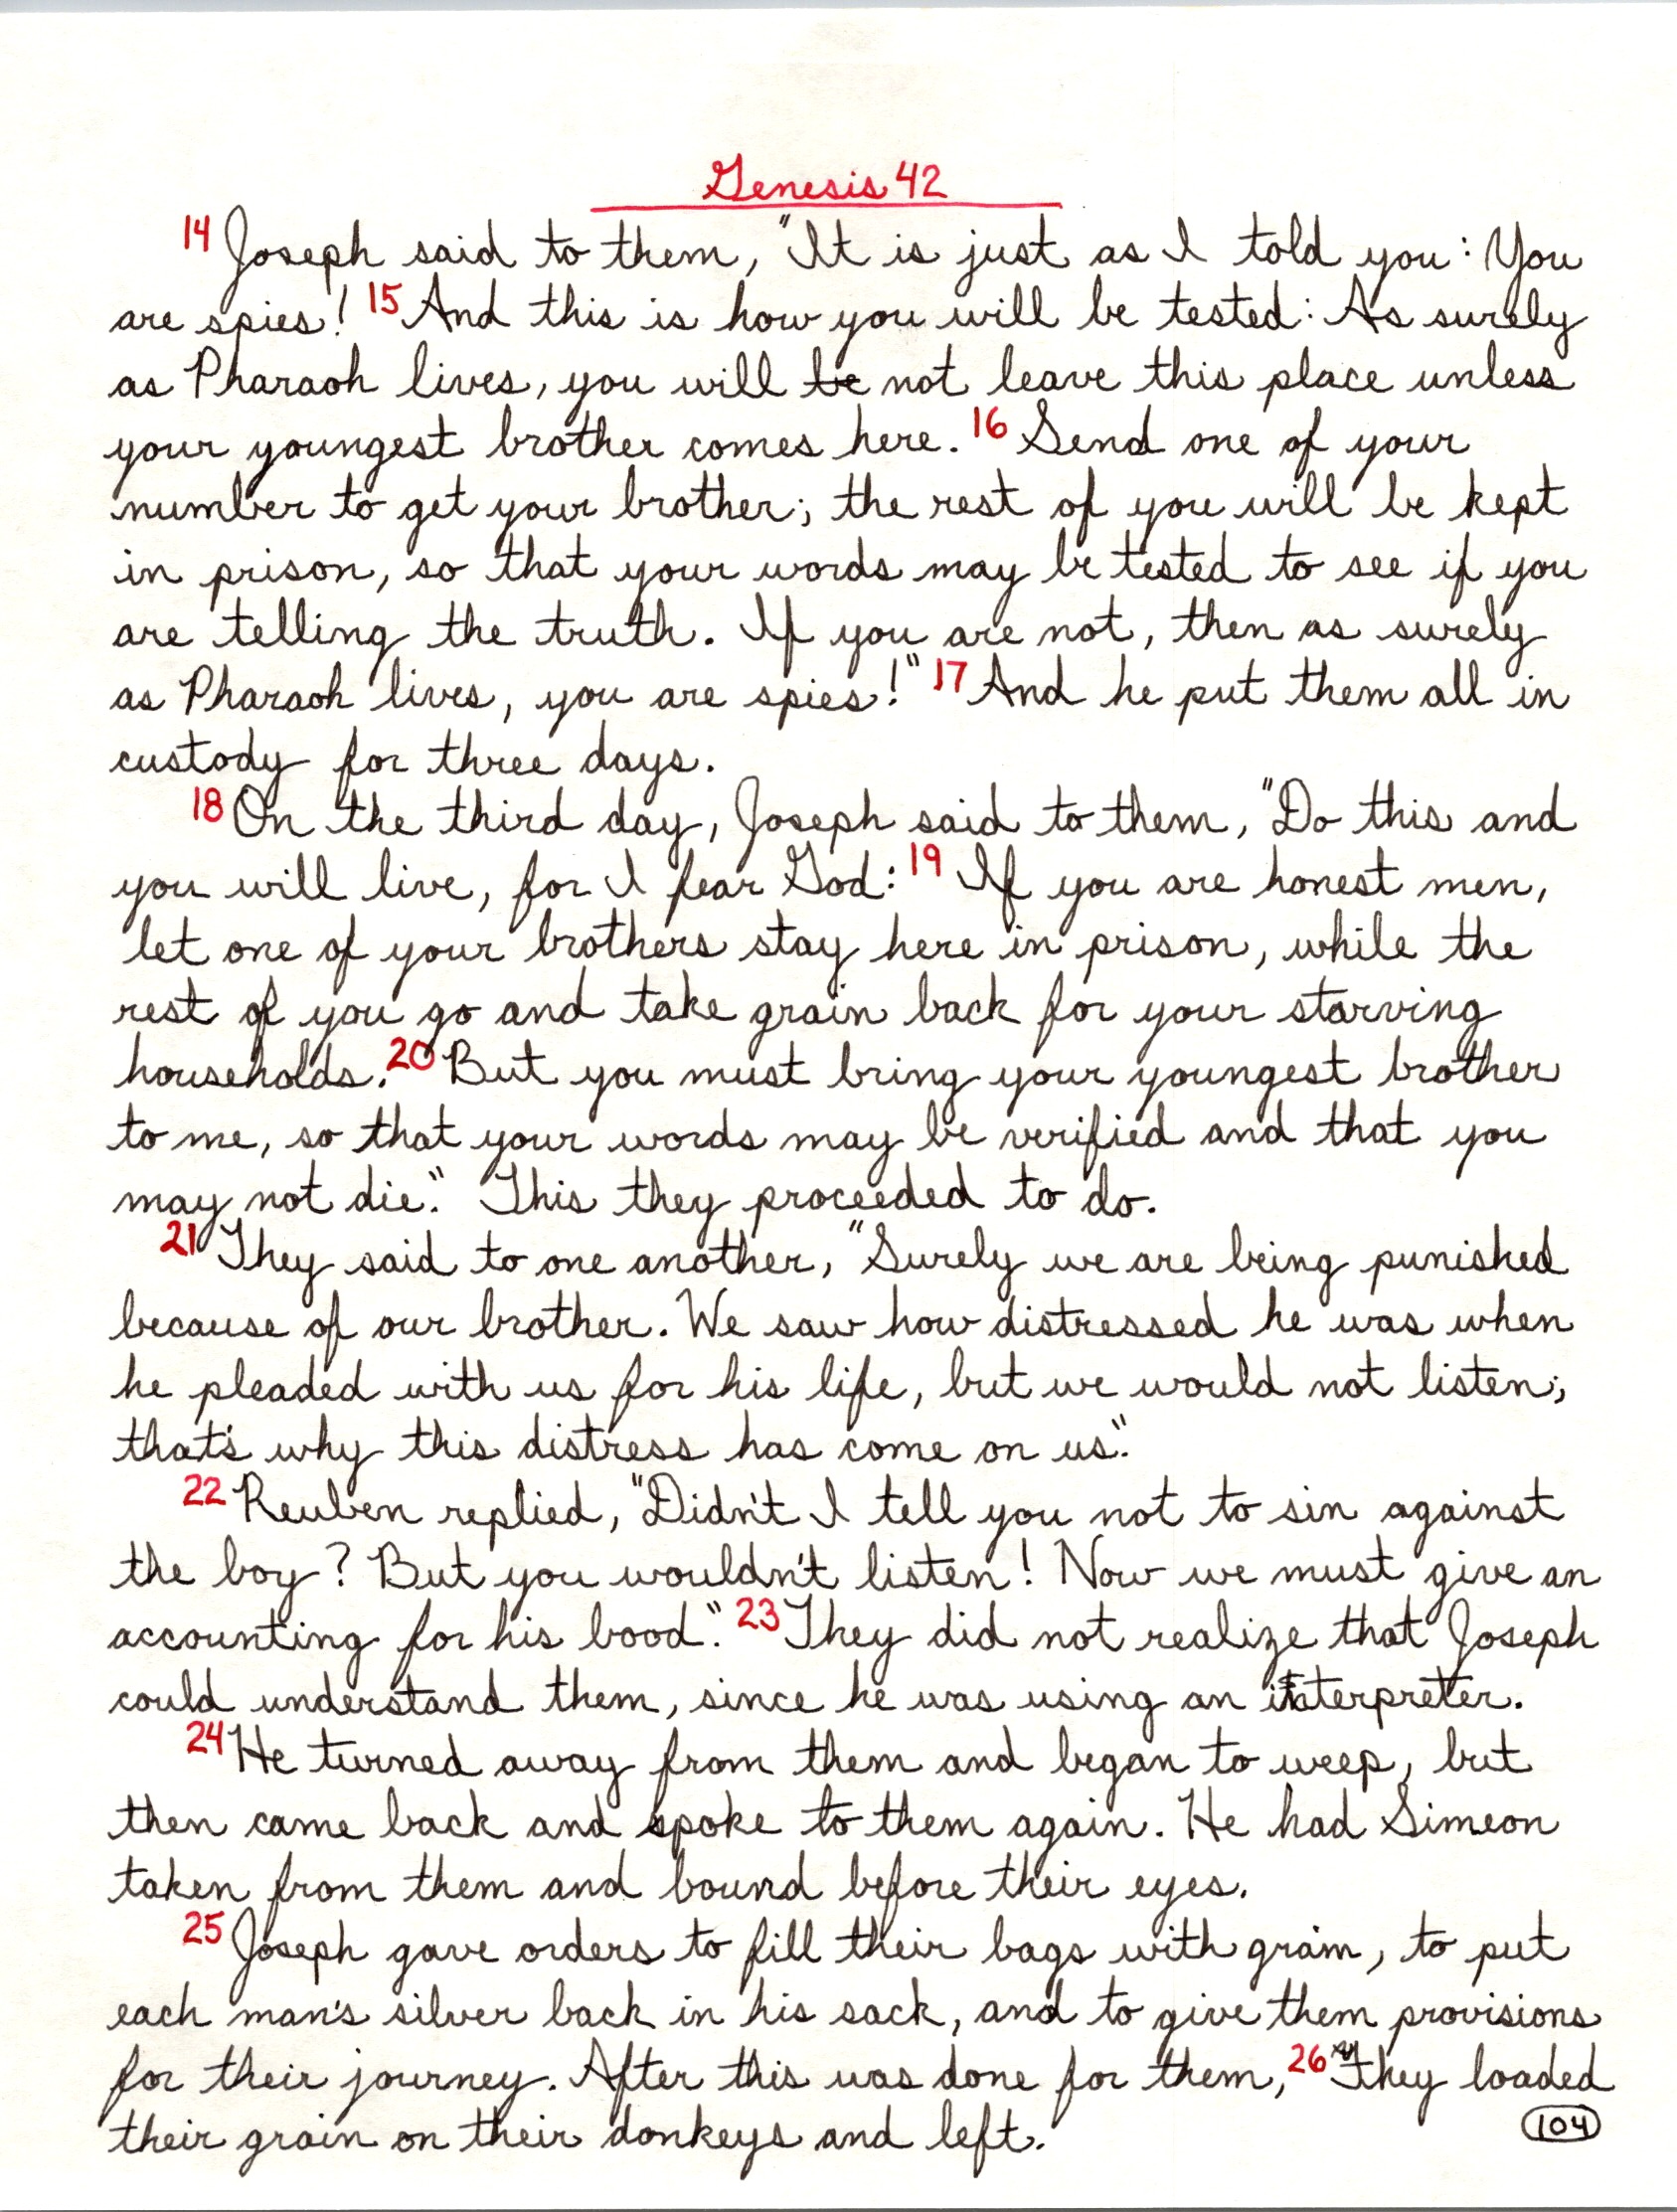 Genesis 42
14 Joseph said to them, "It is just as I told you: You
are spies! 15 And this is how you will be tested: As surely
as Pharaoh lives, you will be not leave this place unless
your youngest brother comes here. 16 Send one of your
number to get your brother; the rest of you will be kept
in prison, so that your words may be tested to see if you
are telling the truth. If you are not, then as surely
as Pharaoh lives, you are spies!" 17 And he put them all in
custody for three days.
18 On the third day, Joseph said to them, "Do this and
you will live, for I fear God: 19 If you are honest men,
let one of your brothers stay here in prison, while the
rest of you go and take grain back for your starving
households. 20 But you must bring your youngest brother
to me, so that your words may be verified and that you
may not die." This they proceeded to do.
21 They said to one another, "Surely we are being punished
because of our brother. We saw how distressed he was when
he pleaded with us for his life, but we would not listen;
that's why this distress has come on us."
22 Reuben replied, "Didn't I tell you not to sin against
the boy? But you wouldn't listen! Now we must give an
accounting for his bood." 23 They did not realize that Joseph
could understand them, since he was using an interpreter.
24 He turned away from them and began to weep, but
then came back and spoke to them again. He had Simeon
taken from them and bound before their eyes.
25 Joseph gave orders to fill their bags with grain, to put
each man's silver back in his sack, and to give them provisions
for their journey. After this was done for them, 26 They loaded
their grain on their donkeys and left.
104